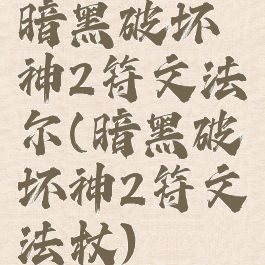 暗黑破坏
神2符文法
尔(暗黑破
坏神2符文
法杖)